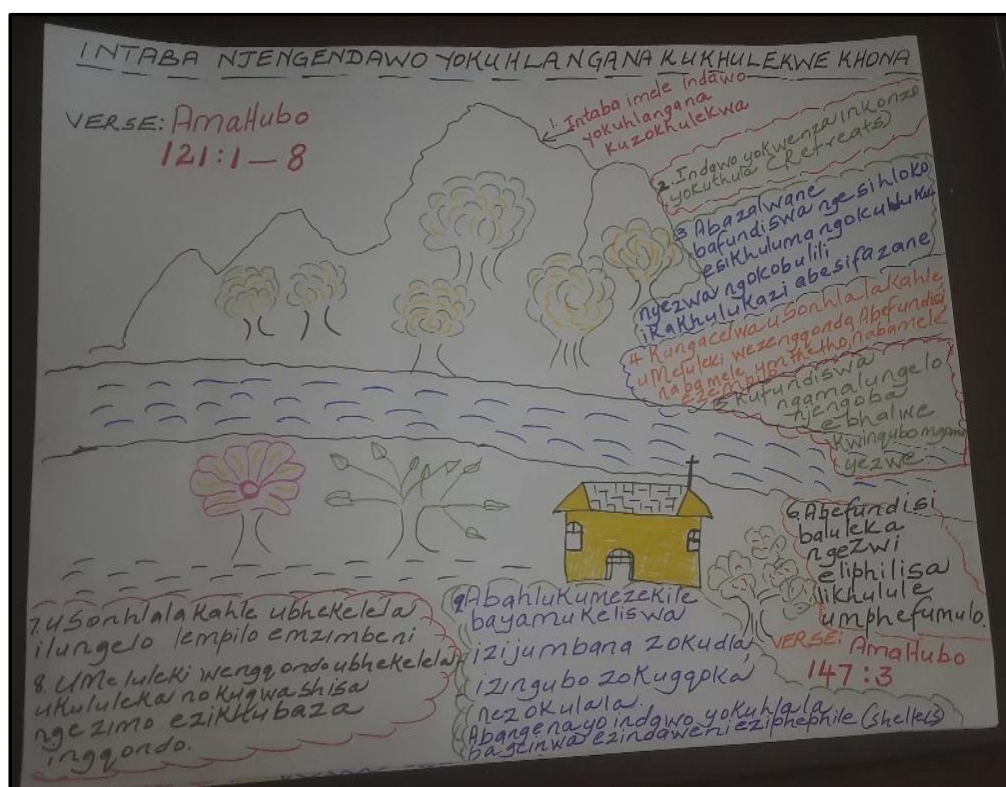 INTABA NJENGENDAWO YOKUHLANGANA KUKHULEKWE KHONA
VERSE: AmaHubo
121:1-8
1. Intaba imele indawo
yokuhlangana
kuzokhulekwa
2. Indawo yokwenza inkonzo
yokuthula (Retreats)
3 Abazalwane
bafundiswa ngesihloko
esikhuluma ngokuhluku-
nyezwa ngokobulili
ikakhulukazi abesifazane
4 Kungacelwa uSonhlalakahle,
uMeluleki wezengqondo, Abefundisi
nabamele umthetho, nabamele
ezempilo
5 Kufundiswa
ngamalungelo
njengoba
ebhalwe
Kwingubo mgomo
yezwe
6. Abefundisi
baluleka
ngeZwi
eliphilisa
likhulule
umphefumulo.
VERSE: AmaHubo
147:3
7. uSonhlalakahle ubhekelela
ilungelo lempilo emzimbeni
8. UMeluleki wengqondo ubhekelela
ukululeka nokugwashisa
ngezimo ezikhubaza
ingqondo.
9. Abahlukumezekile
bayamukeliswa
izijumbana zokudla,
izingubo zokugqoka
nezokulala.
Abangenayo indawo yokuhlala
bagcinwa ezindaweni eziphephile (shelters)